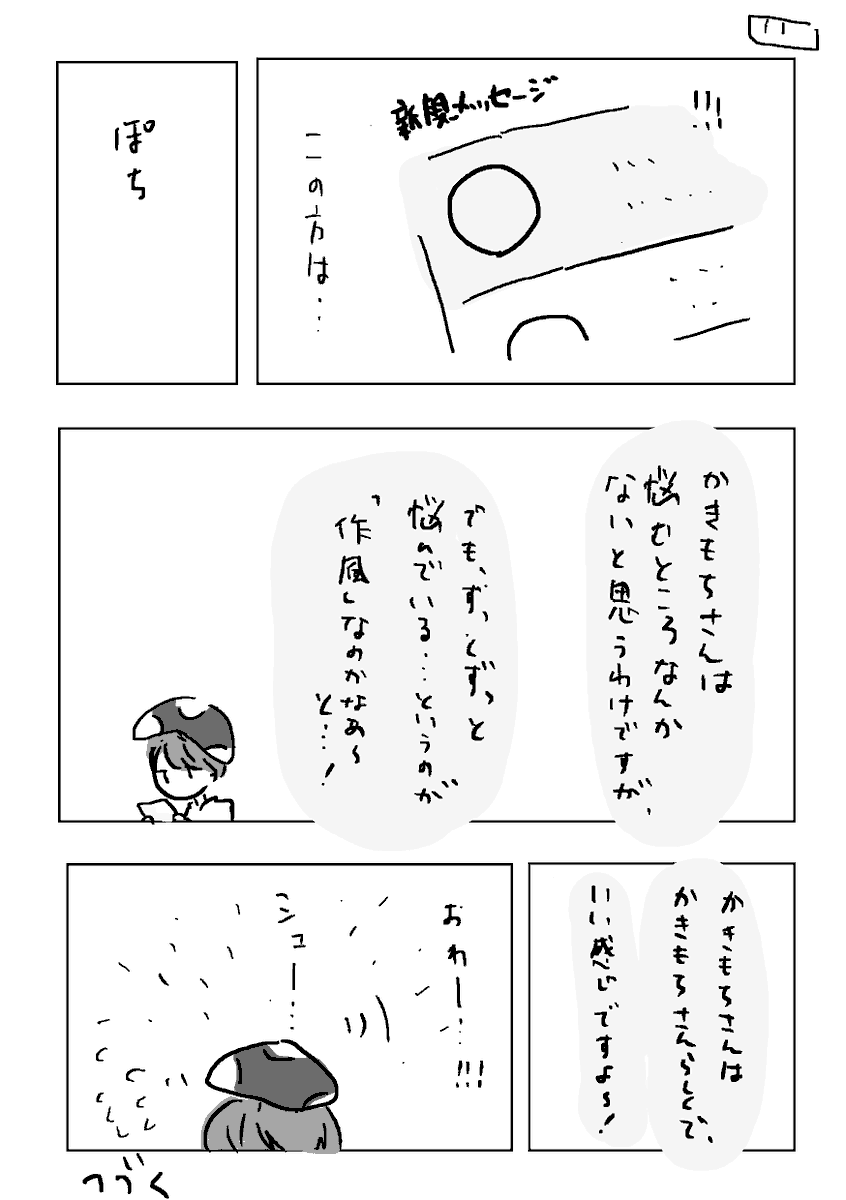 11
!!!
新規メッセージ
この方は…
ぽち
かきもちさんは
悩むところなんか
ないと思うわけですが、
でも、ずっとずっと
悩んでいる…というのが
「作風」なのかなあ〜
と…!
かきもちさんは
かきもちさんらしくて、
いい感じですよ〜!
おわー…!!!
シュー…
つづく